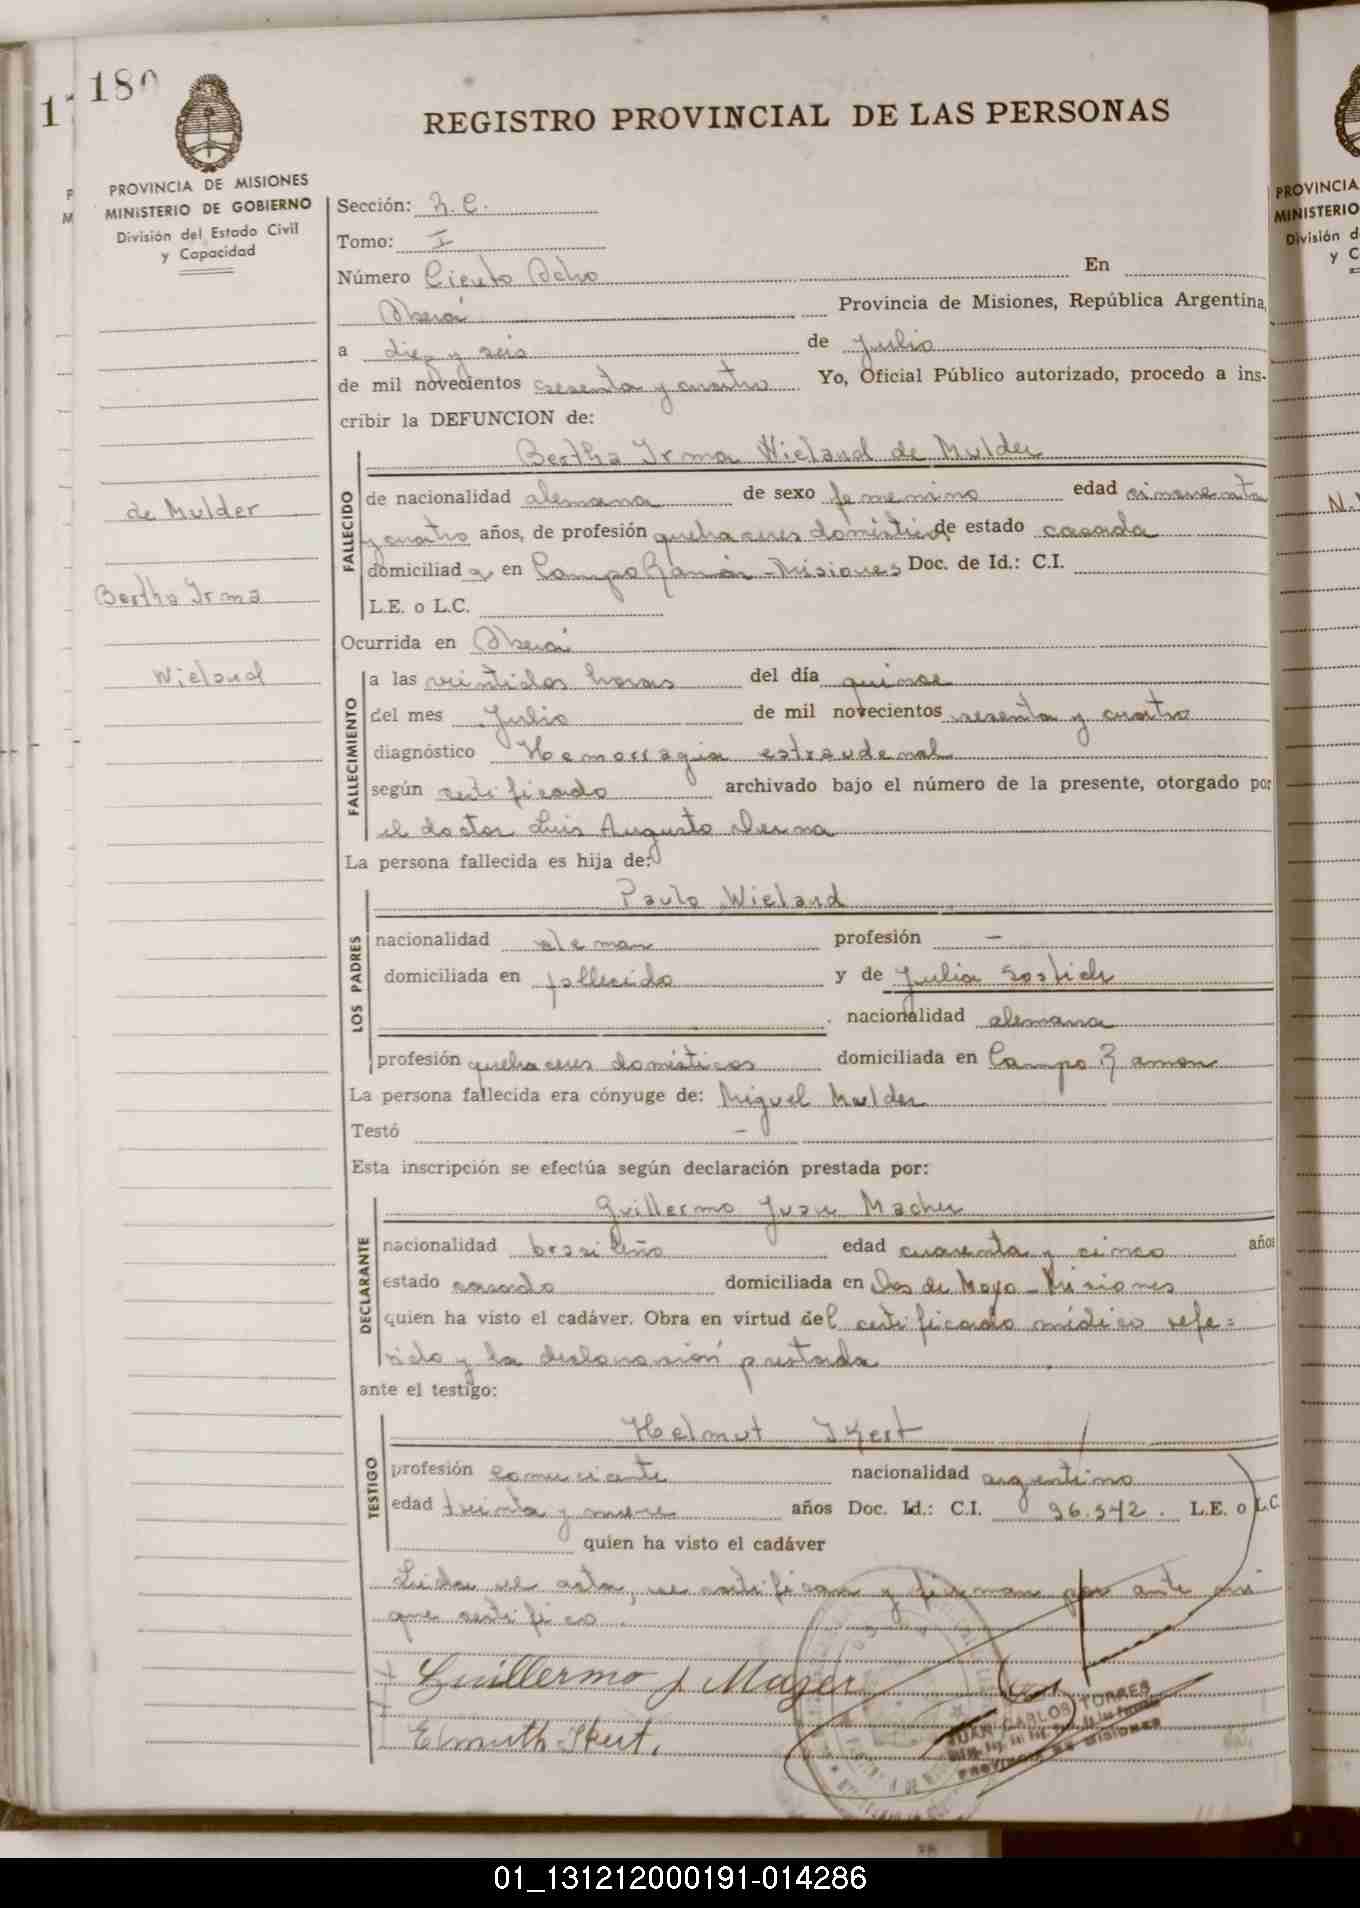 180
REGISTRO PROVINCIAL DE LAS PERSONAS
PROVINCIA DE MISIONES
MINISTERIO DE GOBIERNO
División del Estado Civil
y Capacidad
de Mulder
Bertha Irma
Wieland
Sección: R.C.
Tomo: I
Número Ciento Ocho En
Oberá Provincia de Misiones, República Argentina,
a diez y seis de Julio
de mil novecientos sesenta y cuatro Yo, Oficial Público autorizado, procedo a ins-
cribir la DEFUNCION de:
Bertha Irma Wieland de Mulder
FALLECIDO
de nacionalidad alemana de sexo femenino edad cincuenta
y cuatro años, de profesión quehaceres domésticos de estado casada
domiciliad a en Campo Ramón - Misiones Doc. de Id.: C.I.
L.E. o L.C.
Ocurrida en Oberá
FALLECIMIENTO
a las veintidos horas del día quince
del mes Julio de mil novecientos sesenta y cuatro
diagnóstico Hemorragia estraudenal
según certificado archivado bajo el número de la presente, otorgado por
el doctor Luis Augusto Derna
La persona fallecida es hija de:
Paulo Wieland
LOS PADRES
nacionalidad aleman profesión —
domiciliada en fallecido y de Julia
nacionalidad alemana
profesión quehaceres domésticos domiciliada en Campo Ramon
La persona fallecida era cónyuge de: Miguel Mulder
Testó —
Esta inscripción se efectúa según declaración prestada por:
Guillermo Juan Macher
DECLARANTE
nacionalidad brasileño edad cuarenta y cinco años
estado casado domiciliada en Dos de Mayo - Misiones
quien ha visto el cadáver. Obra en virtud del certificado médico refe=
rido y la declaración prestada
ante el testigo:
Helmut Ikert
TESTIGO
profesión comerciante nacionalidad argentino
edad treinta y nueve años Doc. Id.: C.I. 96.542. L.E. o L.C.
quien ha visto el cadáver
Leida el acta, se ratifican y firman por ante mi
que certifico.
Guillermo J Mager
Elmuth Ikert.
JUAN CARLOS TORRES
PROVINCIA DE MISIONES
PROVINCIA
MINISTERIO
División d
y C
01_131212000191-014286